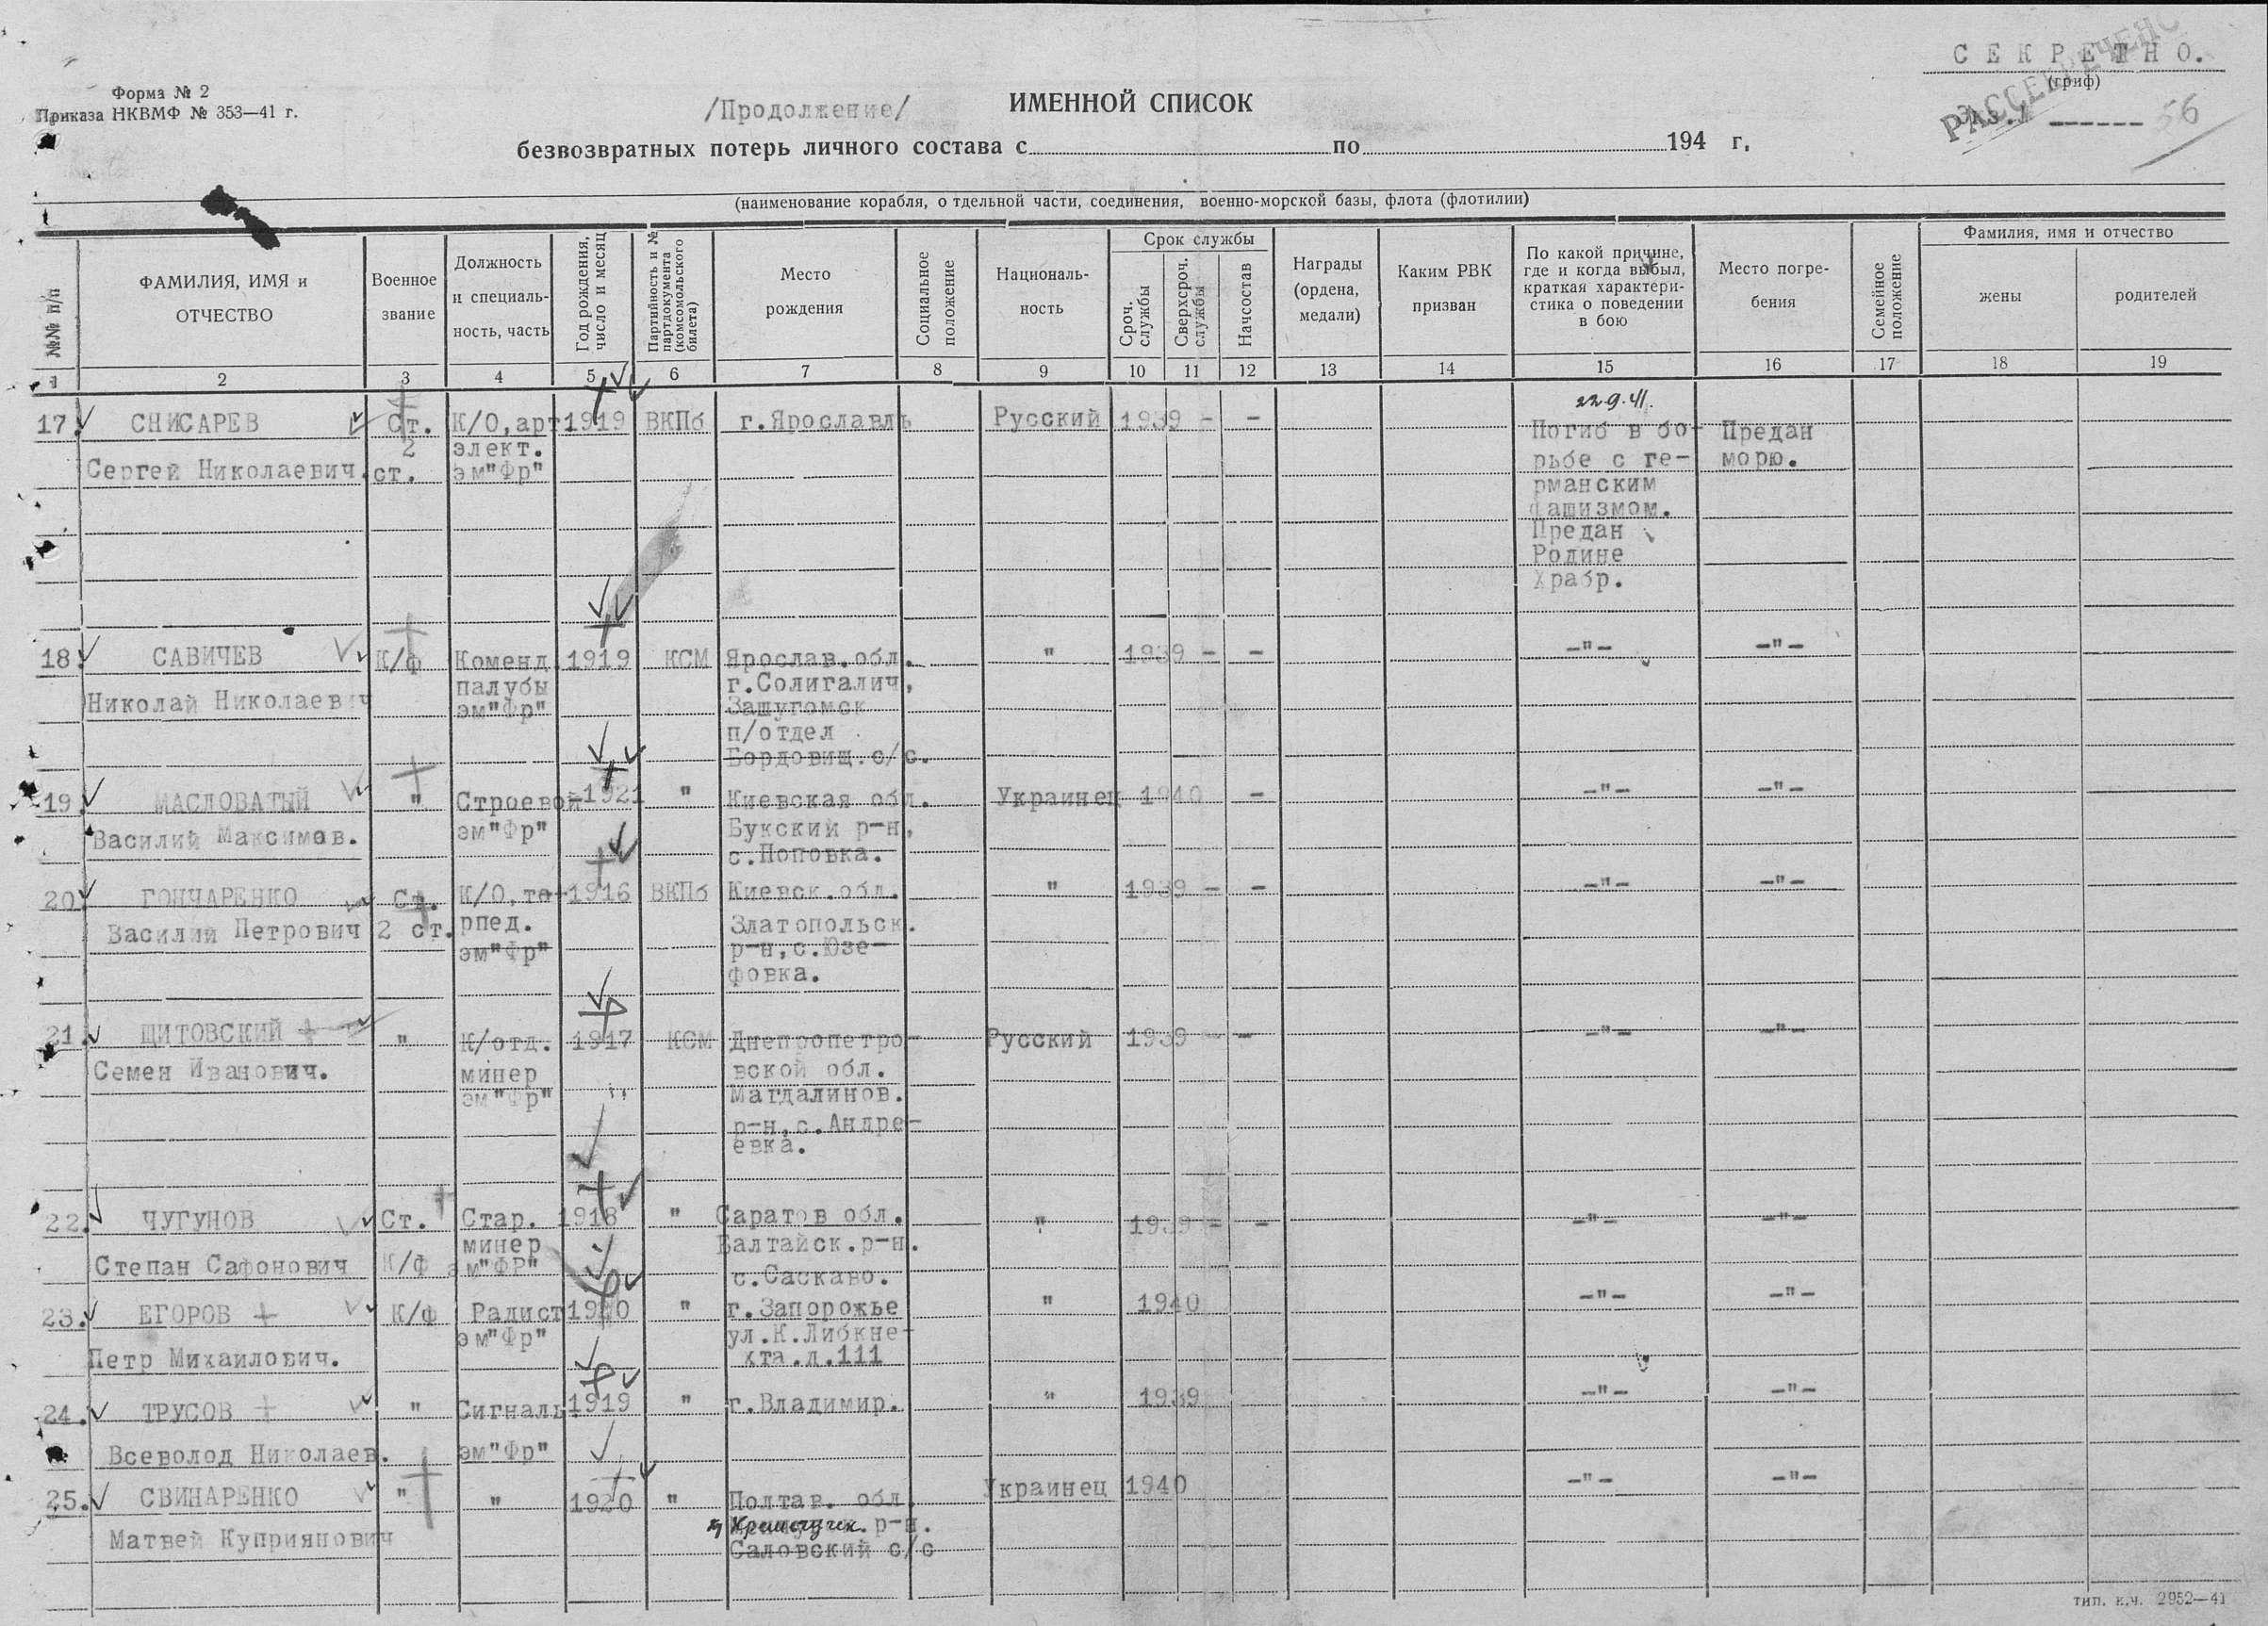 СЕКРЕТНО.
(гриф)
РАССЕКРЕЧЕНО
56
Форма № 2
Приказа НКВМФ № 353—41 г.
/Продолжение/
ИМЕННОЙ СПИСОК
безвозвратных потерь личного состава с по 194 г.
(наименование корабля, о тдельной части, соединения, военно-морской базы, флота (флотилии)
№№ п/п
ФАМИЛИЯ, ИМЯ и ОТЧЕСТВО
Военное звание
Должность и специаль- ность, часть
Год рождения, число и месяц
Партийность и № партдокумента (комсомольского билета)
Место рождения
Социальное положение
Националь- ность
Срок службы
Сроч. службы
Сверхсроч. службы
Начсостав
Награды (ордена, медали)
Каким РВК призван
По какой причине, где и когда выбыл, краткая характери- стика о поведении в бою
Место погре- бения
Семейное положение
Фамилия, имя и отчество
жены
родителей
1 2 3 4 5 6 7 8 9 10 11 12 13 14 15 16 17 18 19
22.9.41.
17. СНИСАРЕВ Ст. К/О,арт. 1919 ВКПб г.Ярославль Русский 1939 - - Погиб в бо- Предан
2 элект. рьбе с ге- морю.
Сергей Николаевич. ст. эм"Фр" рманским
фашизмом.
Предан
Родине
Храбр.
18. САВИЧЕВ К/ф Коменд. 1919 КСМ Ярослав.обл. " 1939 - - -"- -"-
палубы г.Солигалич,
Николай Николаевич эм"Фр" Зашугомск
п/отдел
Бордовищ.с/с.
19. МАСЛОВАТЫЙ " Строевой 1921 " Киевская обл. Украинец 1940 - -"- -"-
Василий Максимов. эм"Фр" Букский р-н,
с.Поповка.
20. ГОНЧАРЕНКО Ст. К/О,то- 1916 ВКПб Киевск.обл. " 1939 - - -"- -"-
Василий Петрович 2 ст. рпед. Златопольск.
эм"Фр" р-н,с.Юзе-
фовка.
21. ЩИТОВСКИЙ " К/отд. 1917 КСМ Днепропетро- Русский 1939 - - -"- -"-
Семен Иванович. минер вской обл.
эм"Фр" Магдалинов.
р-н,с.Андре-
евка.
22. ЧУГУНОВ Ст. Стар. 1918 " Саратов обл. " 1939 - - -"- -"-
минер Балтайск.р-н.
Степан Сафонович К/Ф эм"ФР" с.Саскаво.
23. ЕГОРОВ К/Ф Радист 1920 " г.Запорожье " 1940 -"- -"-
эм"Фр" ул.К.Либкне-
Петр Михаилович. хта.д.111
24. ТРУСОВ " Сигналь. 1919 " г.Владимир. " 1939 -"- -"-
Всеволод Николаев. эм"Фр"
25. СВИНАРЕНКО " " 1920 " Полтав. обл. Украинец 1940 -"- -"-
Кременчугск. р-н.
Матвей Куприянович Саловский с/с
тип. к.ч. 2952—41